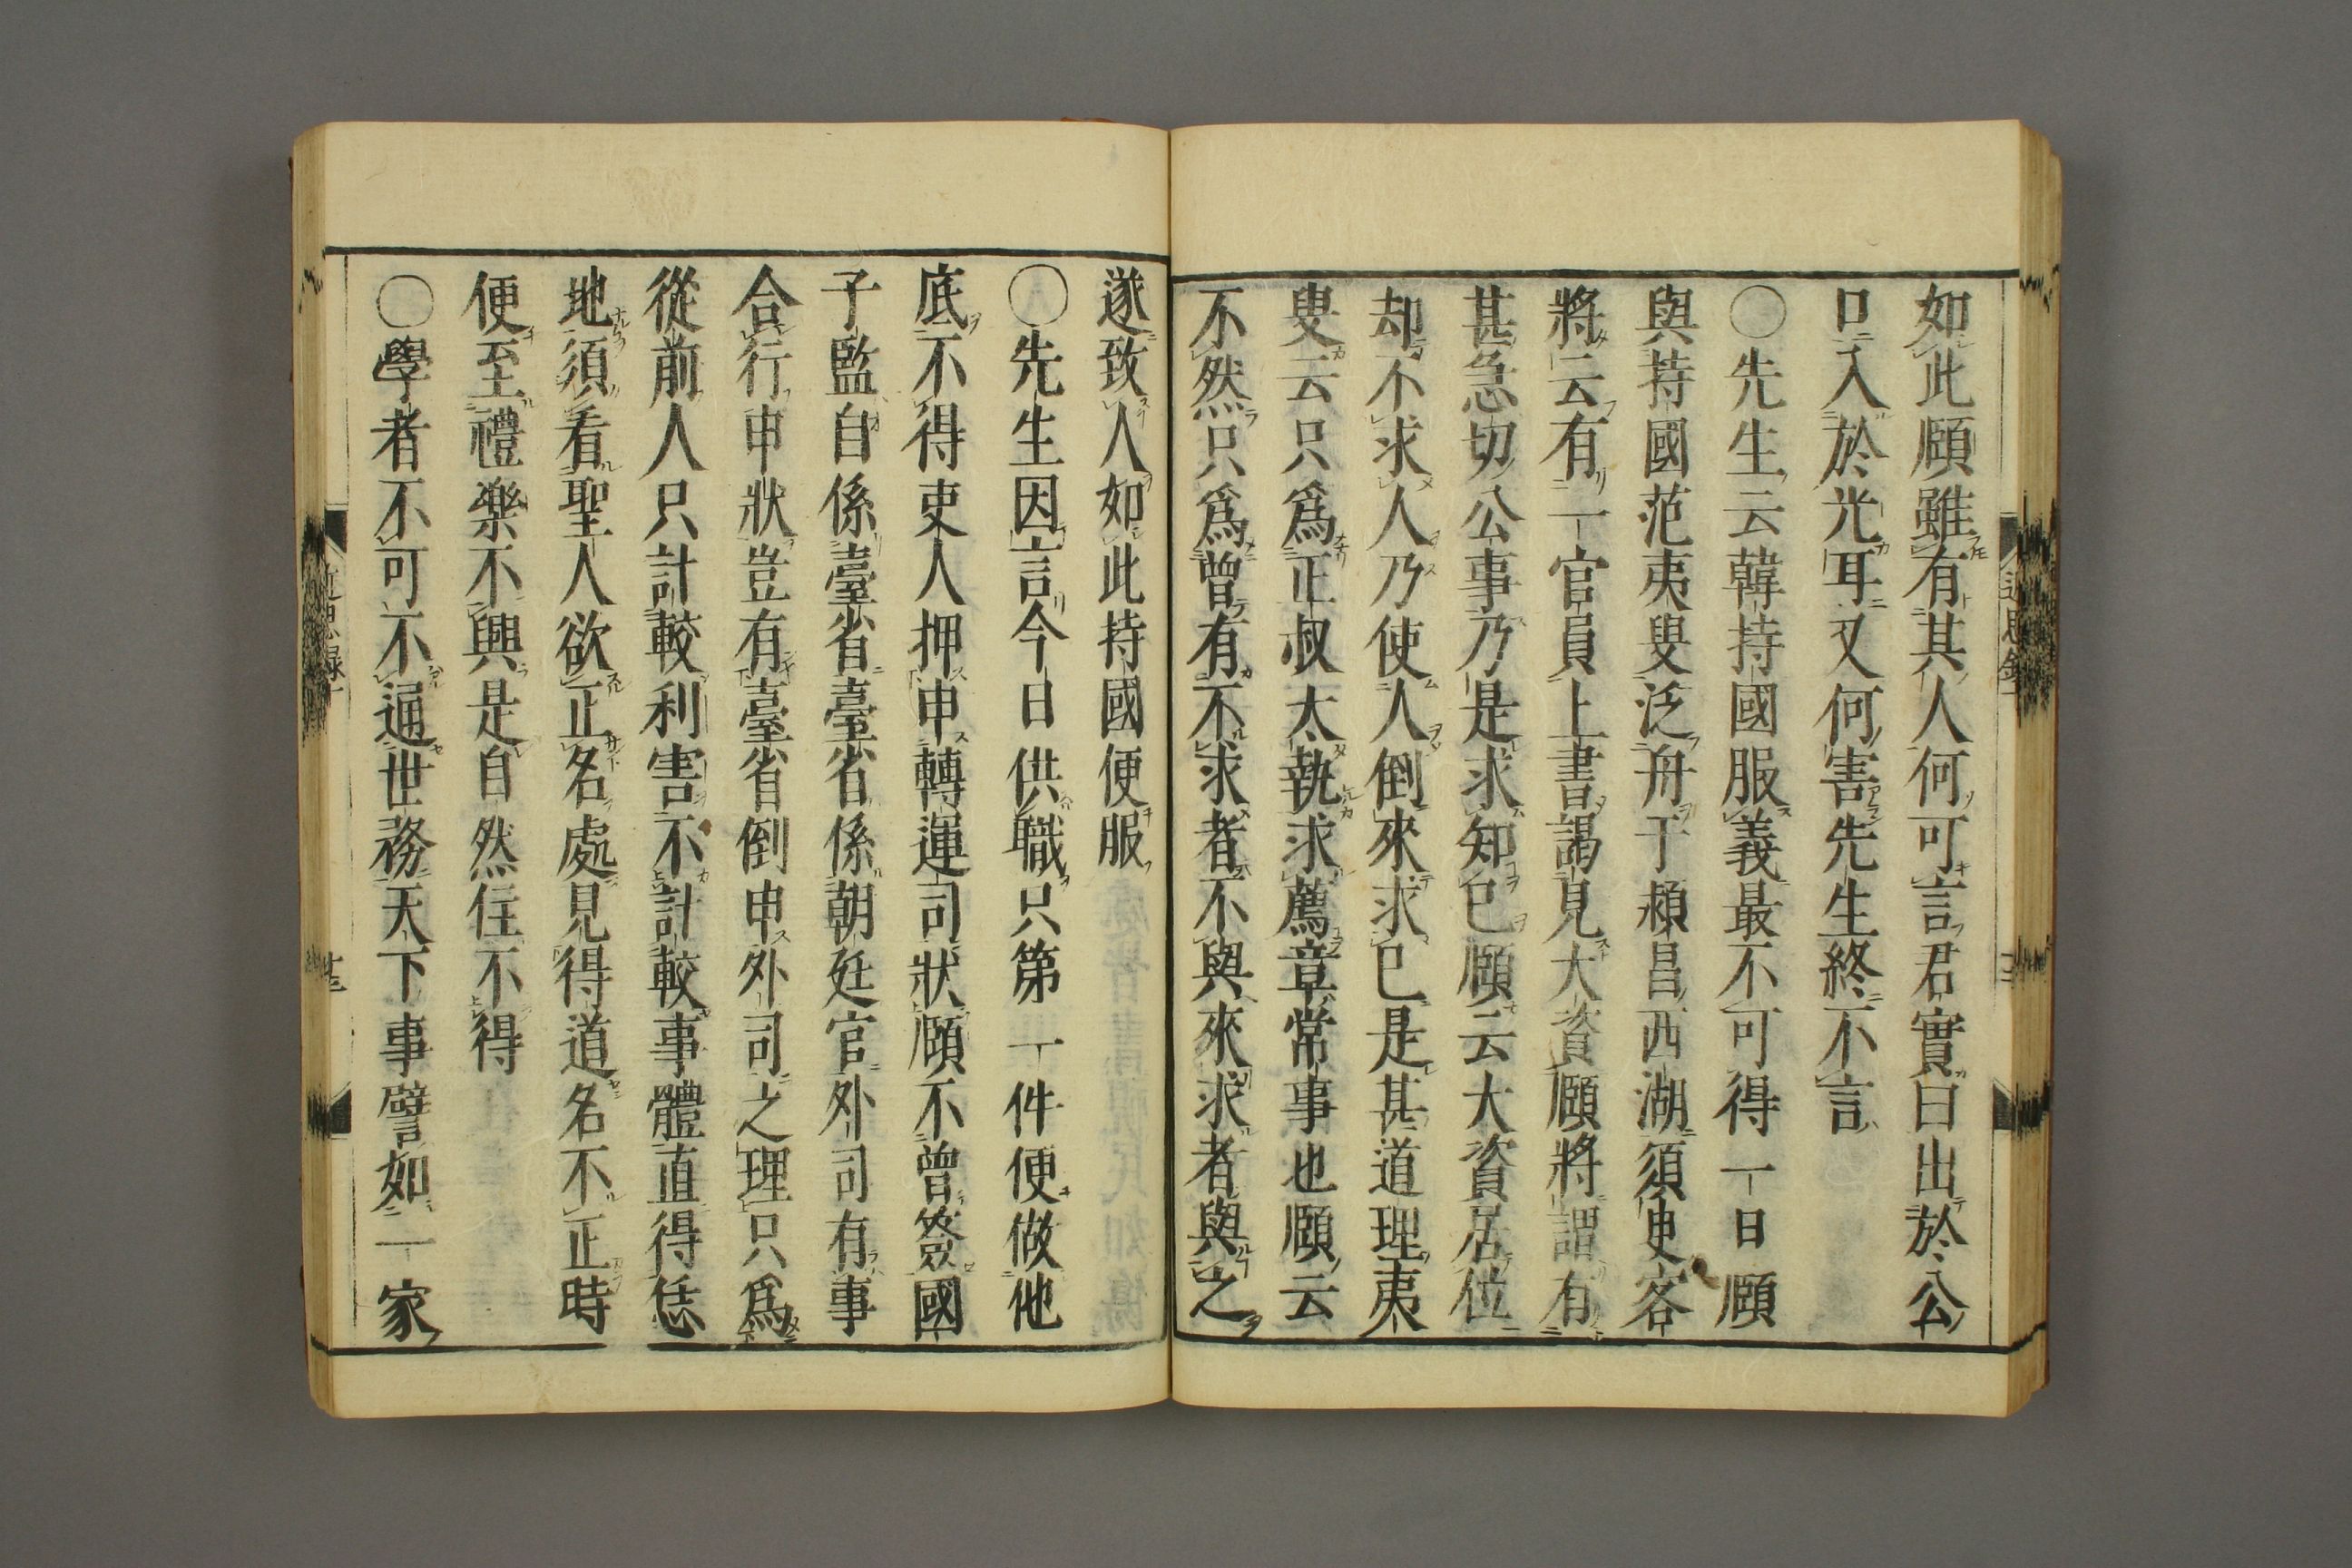 如此頤雖有其人何可言君實曰出於公
口入於光耳又何害先生終不言
○先生云韓持國服義最不可得一日頤
與持國范夷叟泛舟于潁昌西湖須臾客
將云有一官員上書謁見大資頤將謂有
甚急切公事乃是求知已頤云大資居位
却不求人乃使人倒來求已是甚道理夷
叟云只爲正叔太執求薦章常事也頤云
不然只爲曾有不求者不與來求者與之
遂致人如此持國便服
○先生因言今日供職只第一件便做他
底不得吏人押申轉運司狀頤不曾簽國
子監自係臺省臺省係朝廷官外司有事
合行申狀豈有臺省倒申外司之理只爲
從前人只計較利害不計較事體直得恁
地須看聖人欲正名處見得道名不正時
便至禮樂不興是自然住不得
○學者不可不通世務天下事譬如一家
近思録